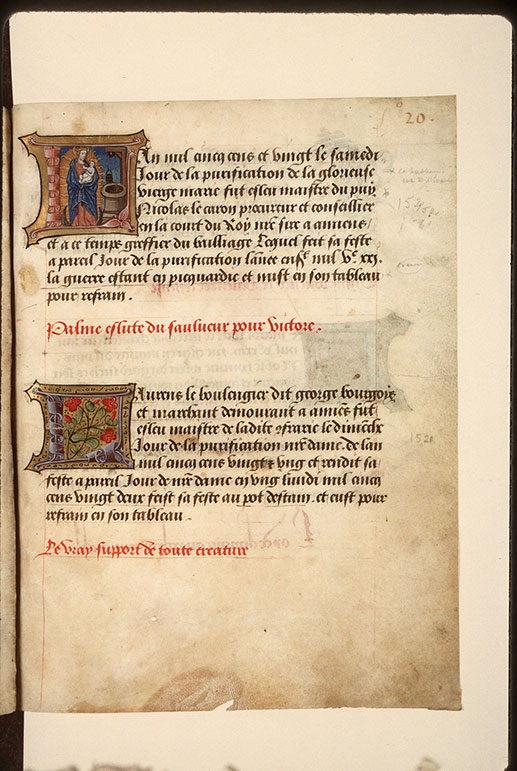 20.
Lan mil cincq cens et vingt le samedi
Jour de la purification de la glorieuse
vierge marie fut esleu maistre du puy
Nicolas le caron procureur et conseillier
en la court du Roy nrẽ sire a amiens
et a ce temps greffier du bailliage Lequel feit sa feste
a pareil Jour de la purification lãnee mil Vᶜ xxi.
la guerre estant en picquardie et mist en son tableau
pour refrain.
Palme eslute du saulueur pour victore.
Laurens le boulengier dit george bourgois
et marchant demourant a amiẽs fut
esleu maistre de ladite ↄfrarie le dimẽche
Jour de la purification nrẽ dame. de lan
mil cincq cens vingt et vng et rendit sa
feste a pareil Jour de nrẽ dame en vng lundi mil cincq
cens vingt deux feist sa feste au pot destain. et eust pour
refrain en son tableau.
Le vray support de toute creature
1521